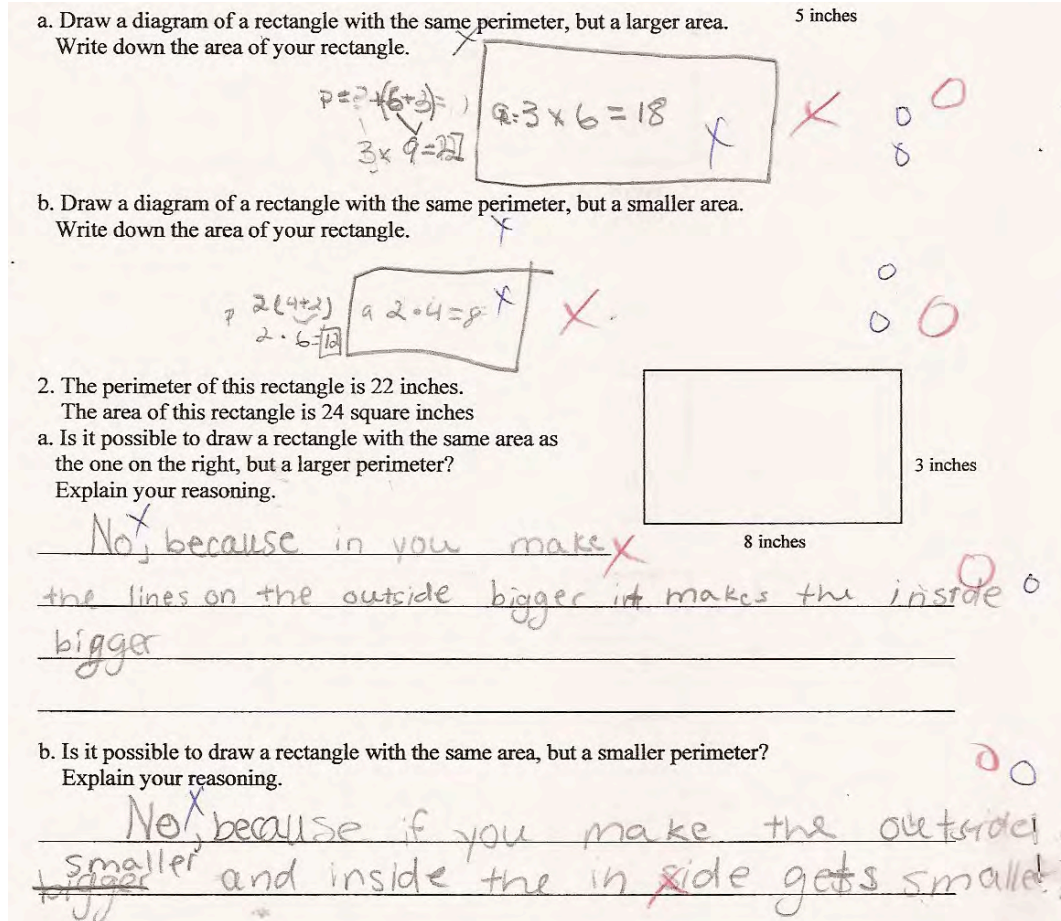 a. Draw a diagram of a rectangle with the same perimeter, but a larger area.
5 inches
Write down the area of your rectangle.
a:3 x 6 = 18
b. Draw a diagram of a rectangle with the same perimeter, but a smaller area.
Write down the area of your rectangle.
p 2(4+2)
2 · 6=12
a 2·4=8
2. The perimeter of this rectangle is 22 inches.
The area of this rectangle is 24 square inches
a. Is it possible to draw a rectangle with the same area as
the one on the right, but a larger perimeter?
Explain your reasoning.
3 inches
8 inches
No, because in you make
the lines on the outside bigger it makes the inside
bigger
b. Is it possible to draw a rectangle with the same area, but a smaller perimeter?
Explain your reasoning.
No, because if you make the outside
smaller and inside the in side gets smaller!